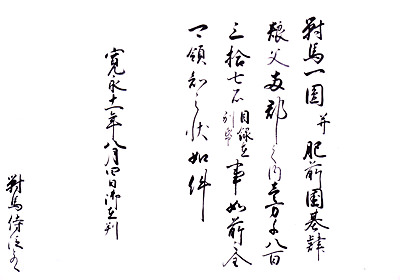 對馬一圓并肥前國基肄
養父両郡之内壱万千八百
三拾七石目録在別帋事如前全
可領知之状如件
寛永十一年八月四日御在判
對馬侍従とのへ